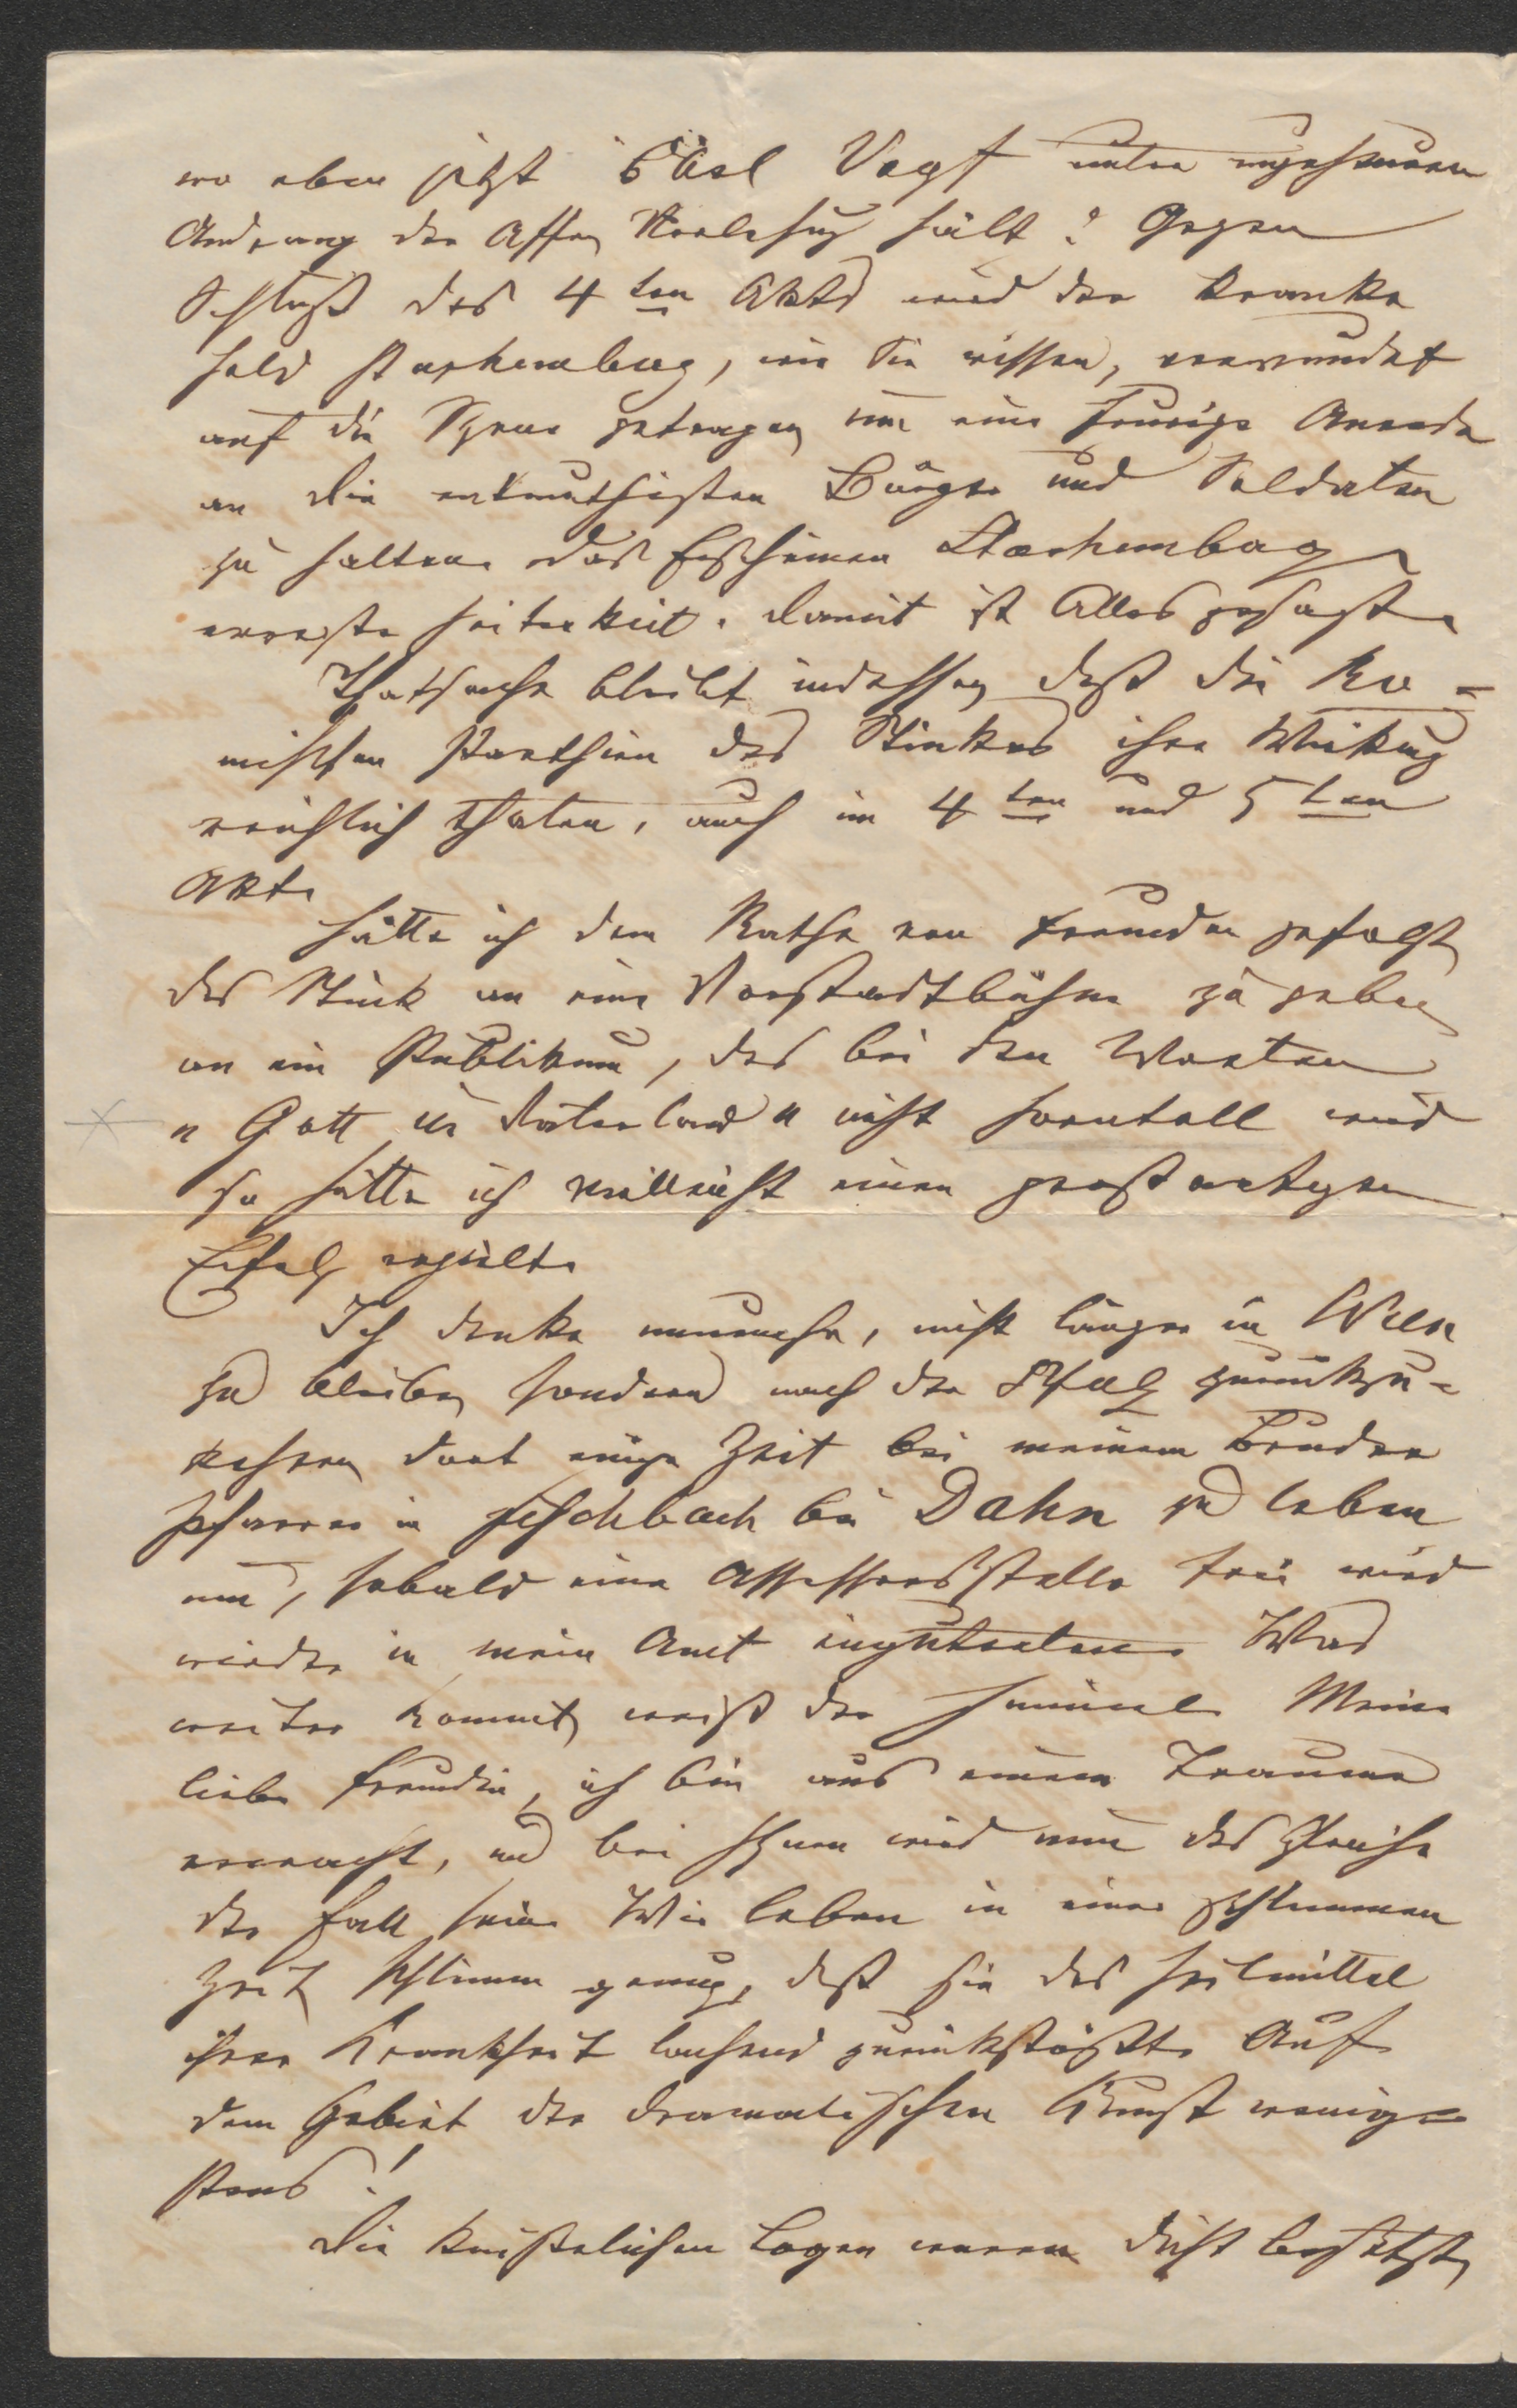 wo eben jetzt Carl Vogt unter ungeheurem
Andrang der Affen Vorlesung hält! Gegen
Schluß des 4ten Akts wird der kranke
Held Starhemberg, wie Sie wissen, verwundet
auf die Scene getragen um eine feurige Anrede
an die entmuthigten Bürger und Soldaten
zu halten. Das Erscheinen Starhembergs
erregte Heiterkeit. Damit ist Alles gesagt.
Thatsache bleibt indessen, daß die ko-
mischen Parthien des Stückes ihre Wirkung
reichlich thaten, auch im 4ten und 5ten
Akt.
Hätte ich dem Rathe von Freunden gefolgt,
das Stück an eine Vorstadtbühne zu geben,
an ein Publikum, das bei den Worten
"Gott u. Vaterland" nicht horntoll wird
so hätte ich vielleicht einen großartigen
Erfolg erzielt.
Ich denke nunmehr, nicht länger in Wien
zu bleiben, sondern nach der Pfalz zurückzu-
kehren, dort einige Zeit bei meinem Bruder
Pfarrer in Fischbach bei Dahn zu leben
um, sobald eine Assessorsstelle frei wird
wieder in mein Amt einzutreten. Was
weiter kommt, weiß der Himmel. Meine
liebe Freundin, ich bin aus einem Traume
erwacht, und bei Ihnen wird nun das Gleiche
der Fall sein. Wir leben in einer schlimmen
Zeit, schlimm genug, daß sie das Heilmittel
ihrer Krankheit lachend zurückstößt. Auf
dem Gebiet der dramatischen Kunst wenig-
stens!
Die kaiserlichen Logen waren dicht besetzt,